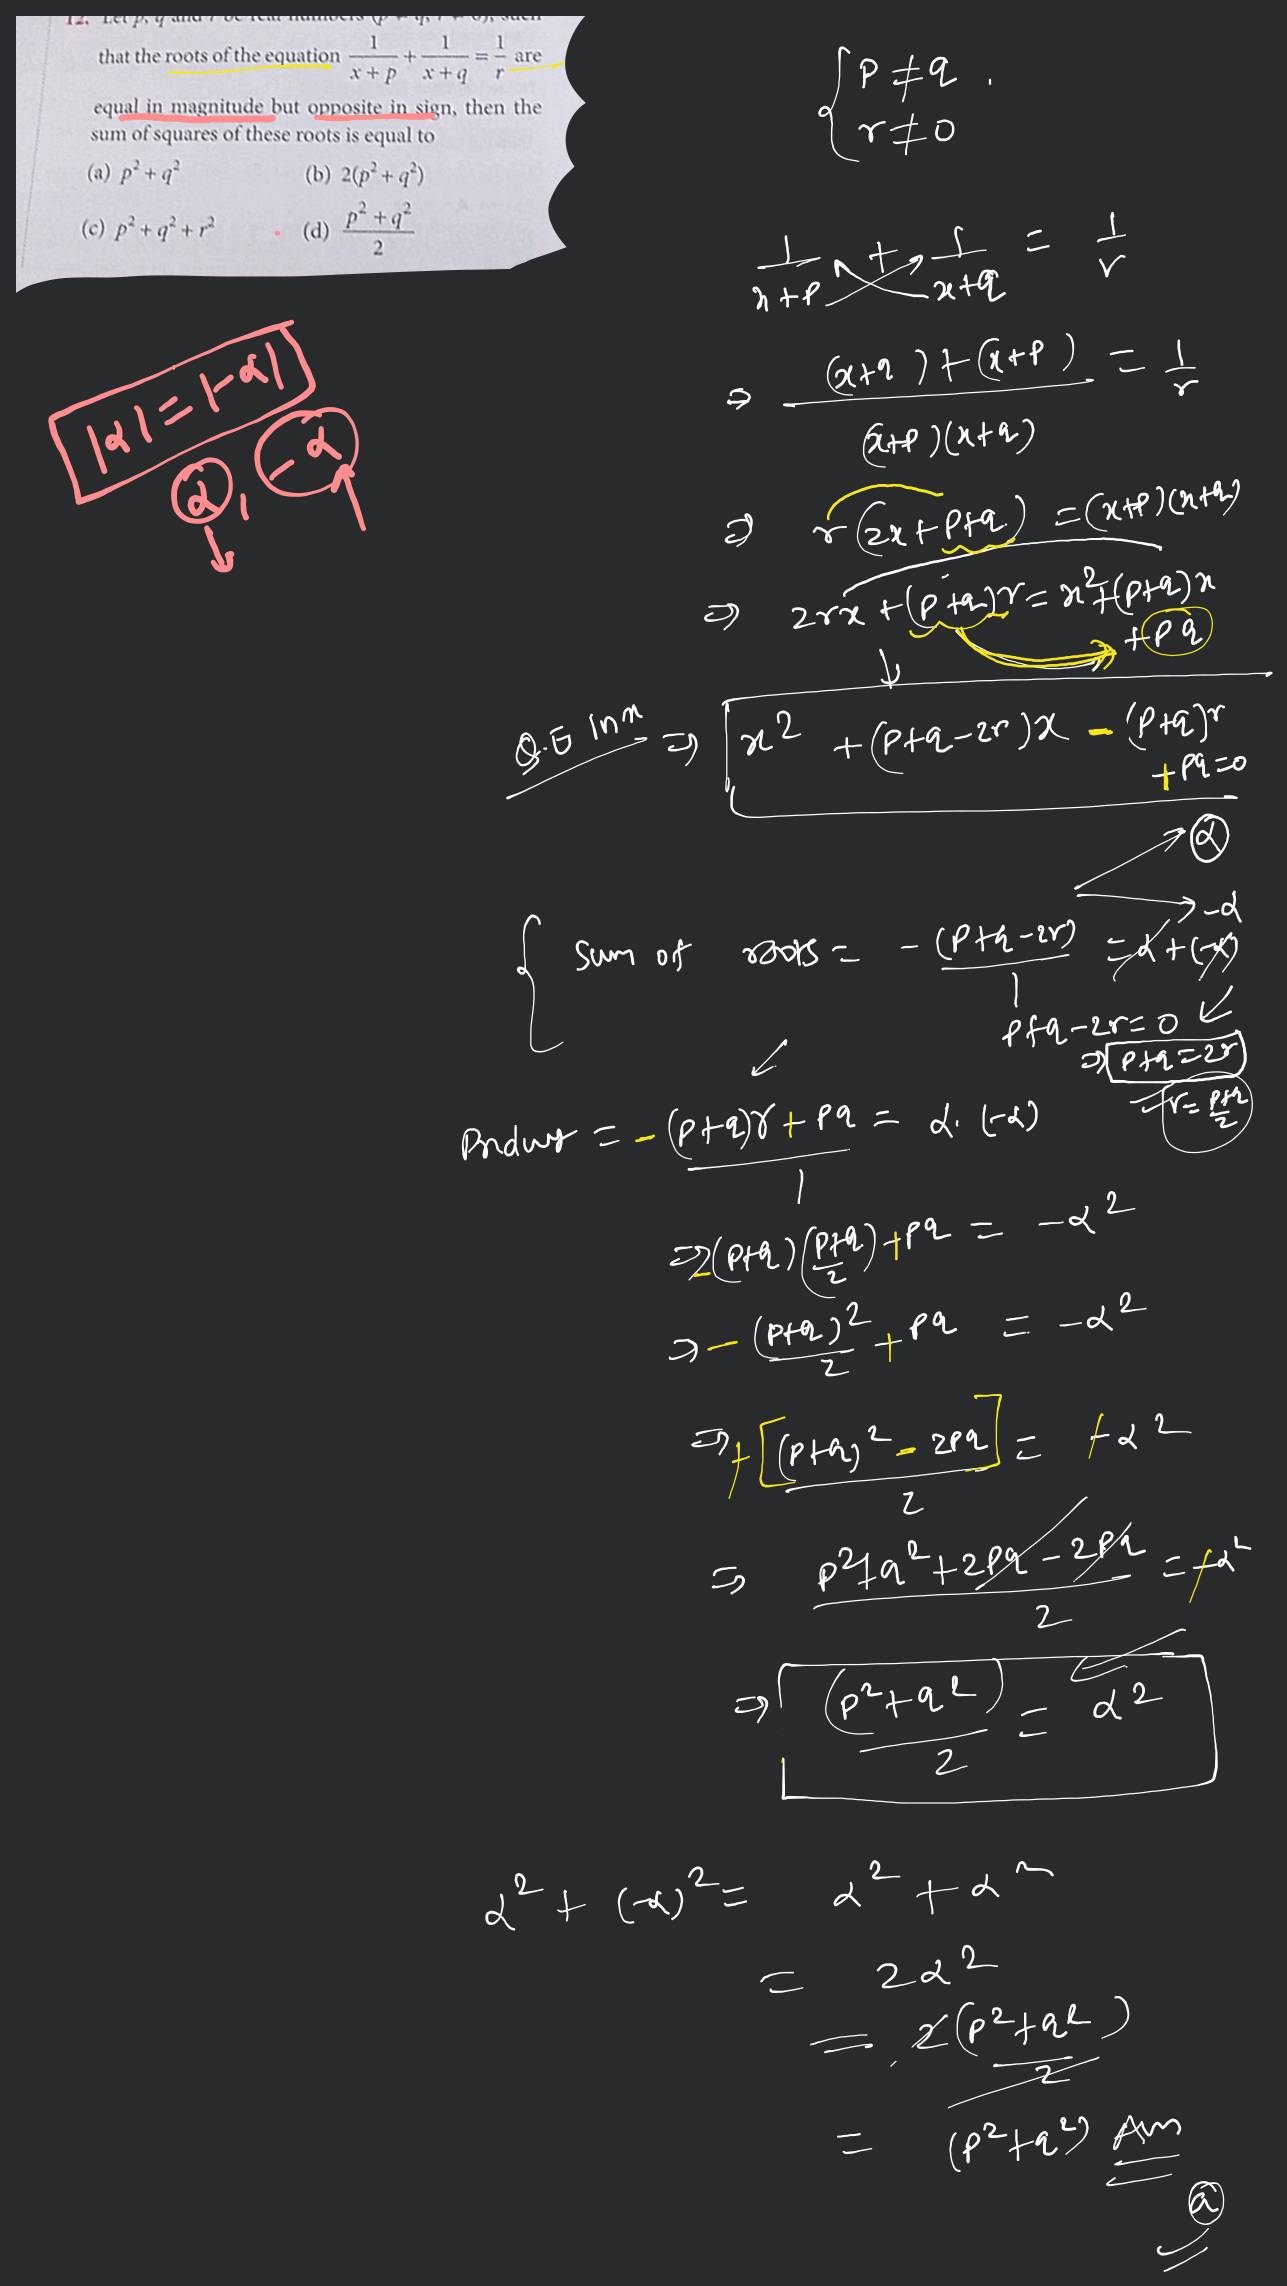 12. Let p, q and r be real numbers (p ≠ q, r ≠ 0), such
that the roots of the equation 1/(x + p) + 1/(x + q) = 1/r are
equal in magnitude but opposite in sign, then the
sum of squares of these roots is equal to
(a) p² + q² (b) 2(p² + q²)
(c) p² + q² + r² (d) (p² + q²)/2
|α| = |-α|
α, -α
{ p ≠ q .
r ≠ 0
1/(x+p) + 1/(x+q) = 1/r
⇒ ((x+q) + (x+p))/((x+p)(x+q)) = 1/r
⇒ r(2x+p+q) = (x+p)(x+q)
⇒ 2rx + (p+q)r = x² + (p+q)x
+pq
Q.E in x ⇒ x² + (p+q-2r)x - (p+q)r
+ pq = 0
α
-α
{ Sum of roots = -(p+q-2r)/1 = α + (-α)
p+q-2r = 0
⇒ p+q = 2r
r = (p+q)/2
Product = (-(p+q)r + pq)/1 = α. (-α)
⇒ -(p+q)((p+q)/2) + pq = -α²
⇒ -(p+q)²/2 + pq = -α²
⇒ -[(p+q)² - 2pq]/2 = -α²
⇒ (p² + q² + 2pq - 2pq)/2 = -α²
⇒ (p²+q²)/2 = α²
α² + (-α)² = α² + α²
= 2α²
= 2(p²+q²)/2
= (p²+q²) Ans
(a)